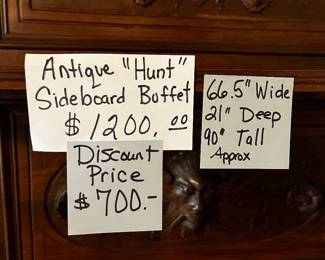 Antique "Hunt"
Sideboard Buffet
$1200.00
Discount
Price
$700.-
66.5" Wide
21" Deep
90" Tall
Approx